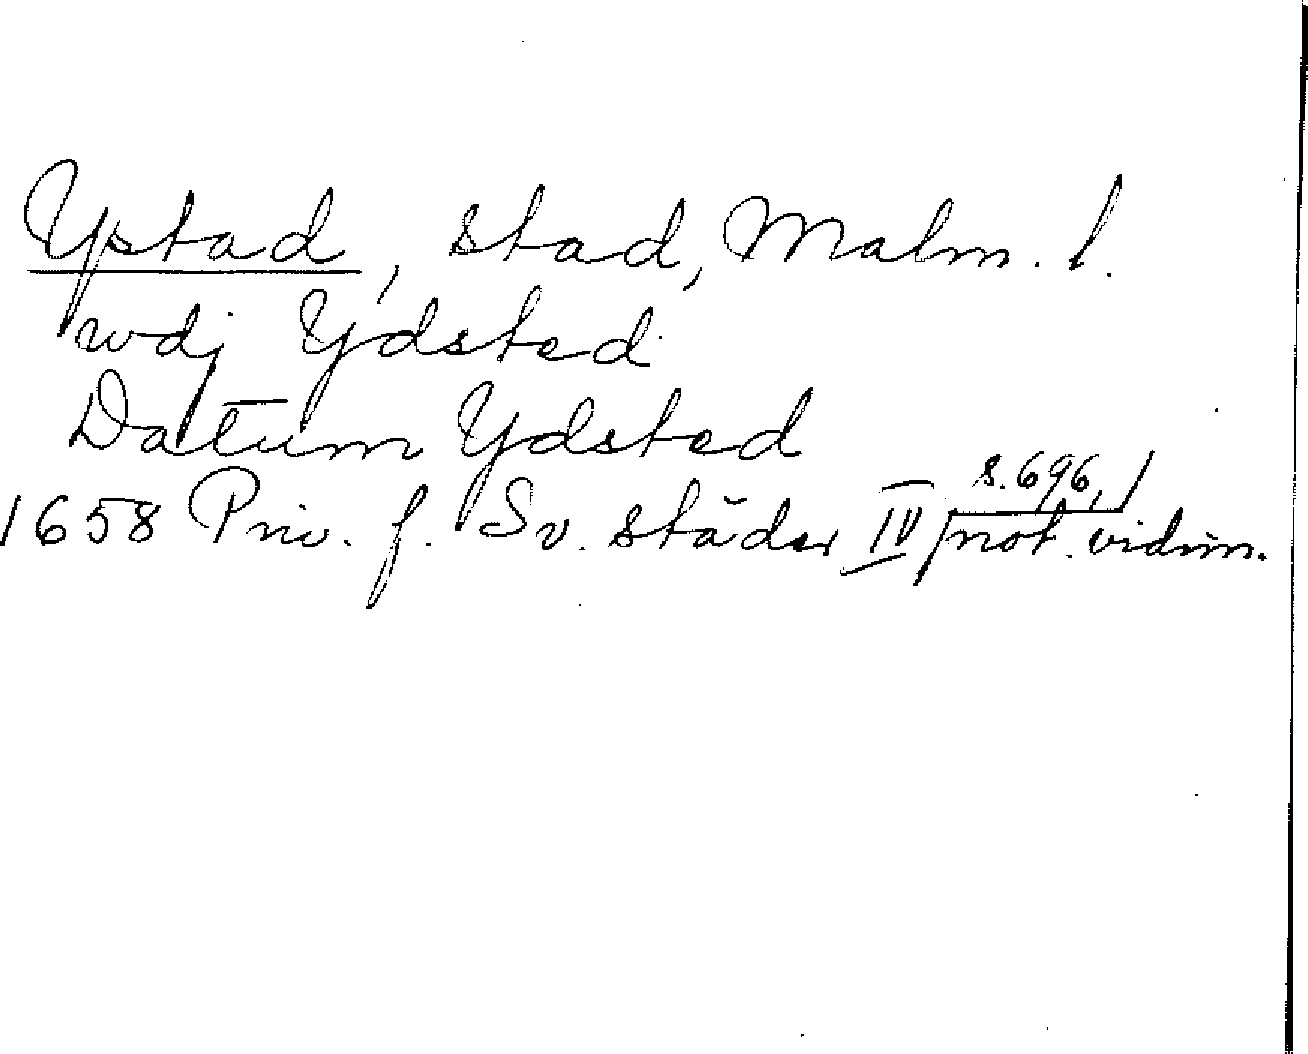 Ystad, stad, Malm. l.
wdj Ydsted
Datum Ydsted
1658 Priv. f. Sv. städer IV s. 696, not. vidim.